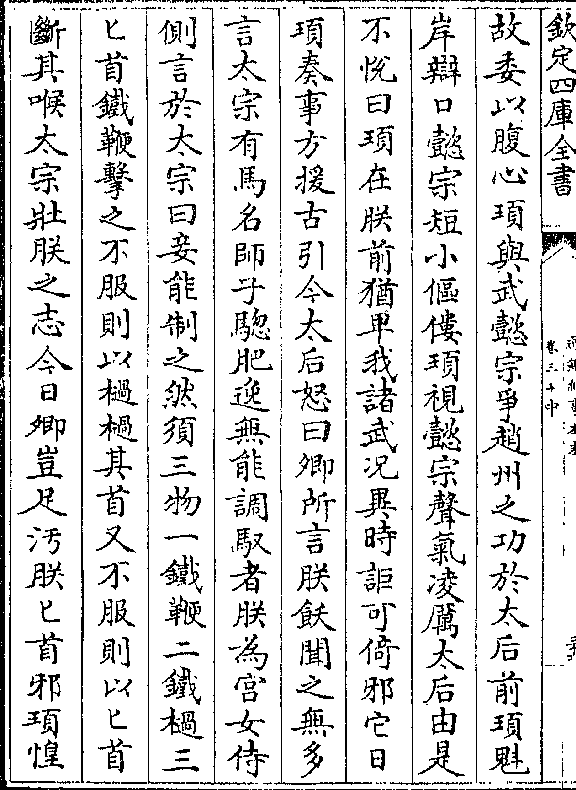 欽定四庫全書
卷三十中
故委以腹心頊與武懿宗爭趙州之功於太后前頊魁
岸辯口懿宗短小傴僂頊視懿宗聲氣凌厲太后由是
不悅曰頊在朕前猶卑我諸武况異時詎可倚邪它日
頊奏事方援古引今太后怒曰卿所言朕飫聞之無多
言太宗有馬名師子驄肥逸無能調馭者朕為宫女侍
側言於太宗曰妾能制之然須三物一鐵鞭二鐵檛三
匕首鐵鞭擊之不服則以檛檛其首又不服則以匕首
斷其喉太宗壯朕之志今日卿豈足汚朕匕首邪頊惶